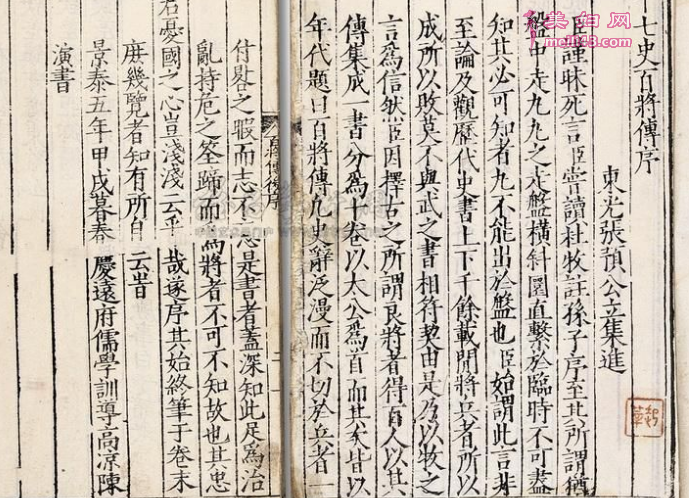 七史百將傳序
東光張預公立集進
臣謹昧死言臣嘗讀杜牧註孫子序至其所謂猶
盤中走丸丸之走盤橫斜圓直繫於臨時不可盡
知其必可知者丸不能出於盤也臣始謂此言非
至論及觀歷代史書上下千餘載間將兵者所以
成所以敗莫不與武之書相符契由是乃以牧之
言爲信然臣因擇古之所謂良將者得百人以其
傳集成一書分爲十卷以太公爲首而其次皆以
年代題曰百將傳凡史辭泛漫而不切於兵者一
百將傳後序
付畧之暇而志不忘是書者蓋深知此足爲治
亂持危之筌蹄而爲將者不可不知故也其忠
君憂國之心豈淺淺云乎哉遂序其始終筆于卷末
庶幾覽者知有所自云旹
景泰五年甲戌暮春慶遠府儒學訓導高凉陳
演書
美妇网
meifu3.com